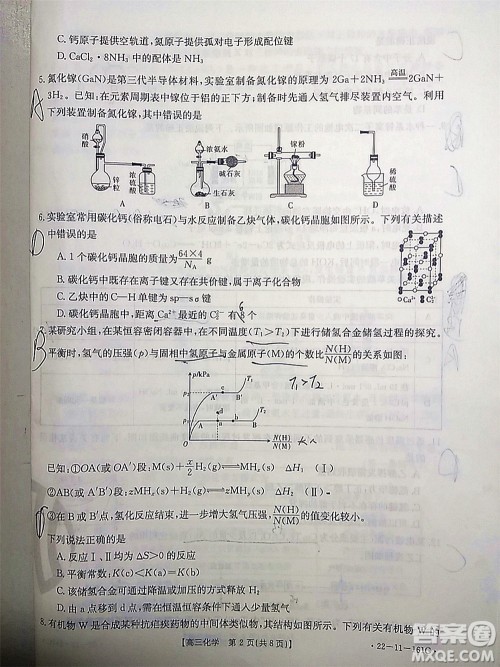 C. 钙原子提供空轨道,氮原子提供孤对电子形成配位键
D. CaCl₂·8NH₃ 中的配体是 NH₃
5. 氮化镓(GaN)是第三代半导体材料,实验室制备氮化镓的原理为 2Ga+2NH₃ 高温 2GaN+
3H₂。已知:在元素周期表中镓位于铝的正下方;制备时先通入氢气排尽装置内空气。利用
A
下列装置制备氮化镓,其中错误的是
硝酸
锌粒
浓硫酸
浓氨水
碱石灰
生石灰
镓粉
稀硫酸
A B C D
6. 实验室常用碳化钙(俗称电石)与水反应制备乙炔气体,碳化钙晶胞如图所示。下列有关描述
D
中错误的是
A. 1 个碳化钙晶胞的质量为 64×4/N_A g
B. 碳化钙中既存在离子键又存在共价键,属于离子化合物
C. 乙炔中的 C—H 单键为 sp—s σ 键
D. 碳化钙晶胞中,距离 Ca²⁺ 最近的 C₂²⁻ 有 8 个
6
○Ca²⁺ ●C₂²⁻
7. 某研究小组,在某恒容密闭容器中,在不同温度(T₁>T₂)下进行储氢合金储氢过程的探究。
B
平衡时,氢气的压强(p)与固相中氢原子与金属原子(M)的个数比 N(H)/N(M) 的关系如图:
p/kPa
T₁
T₂
p₂
p₁
A′ B′
A B
a b
c d
O
N(H)/N(M)
T₁>T₂
已知:①OA(或 OA′)段:M(s)+x/2 H₂(g)⇌MHₓ(s) ΔH₁ (Ⅰ)
②AB(或 A′B′)段:zMHₓ(s)+H₂(g)⇌zMHᵧ(s) ΔH₂ (Ⅱ)
③在 B 或 B′点,氢化反应结束,进一步增大氢气压强,N(H)/N(M) 的值变化较小。
下列说法正确的是
A. 反应Ⅰ、Ⅱ均为 ΔS>0 的反应
B. 平衡常数:K(c)<K(b)=K(a)
C. 该储氢合金可通过降温或加压的方式释放 H₂
D. 由 a 点移到 d 点,需增大容器体积
8. 有机物 W 是合成某种抗疟药物的中间体,其结构如图所示。下列有关有机物 W 的
【高三化学 第 2 页(共 8 页)】
·22-11-161C·